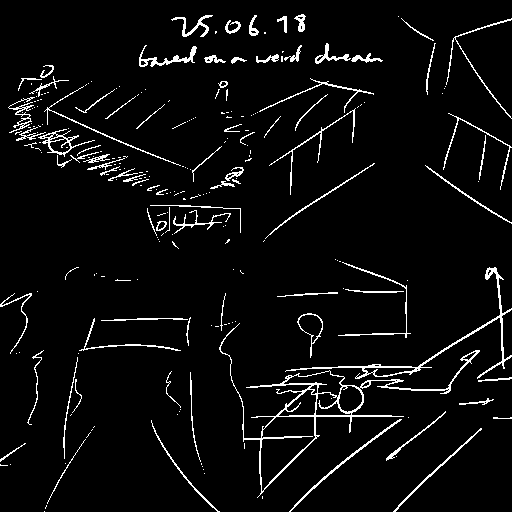 25.06.18
based on a weird dream